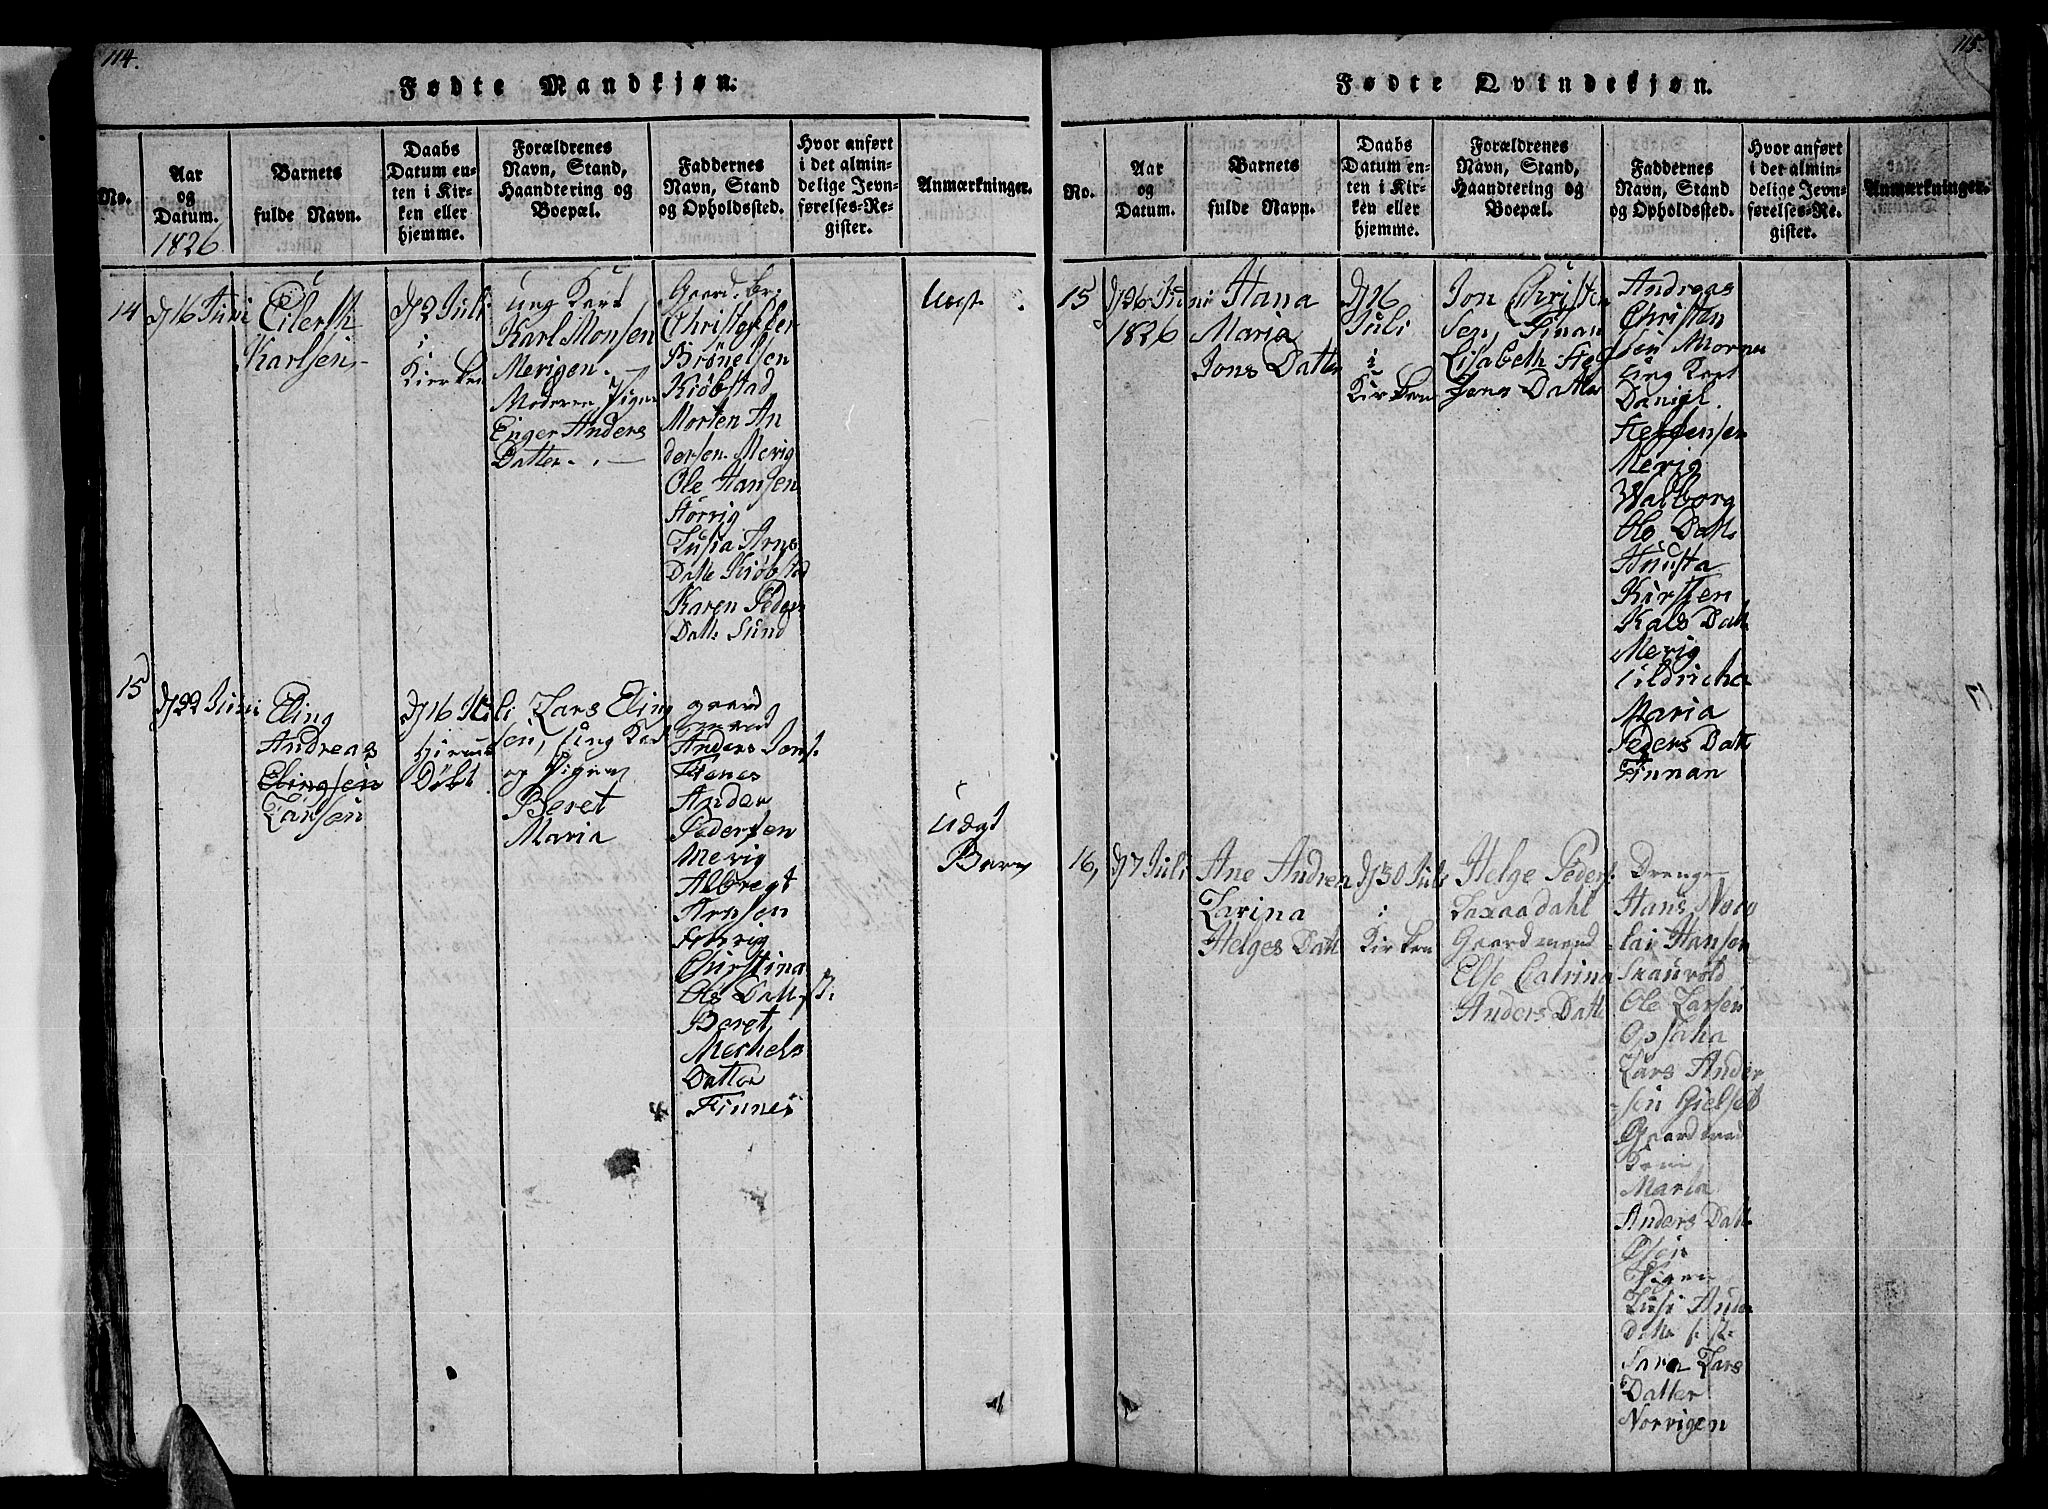 114.
Fødte Mandkjøn.
No.
Aar
og
Datum.
1826
Barnets
fulde Navn.
Daabs
Datum en-
ten i Kir-
ken eller
hjemme.
Forældrenes
Navn, Stand,
Haandtering og
Boepæl.
Faddernes
Navn, Stand
og Opholdssted.
Hvor anført
i det almin-
delige Jevn-
førelses-Re-
gister.
Anmærkninger.
14
16 Juni
Eilerth
Karlsen
2 Juli
i
Kirken
ung Karl
Karl Monsen
Merigen.
Moderen Pigen
Enger Anders
Datter.
Gaard.br.
Christopher
Brönelsen
Kiöbstad
Morten An
dersen Merig
Ole Hansen
Storvig
Lusia Arns
Datte Kiöbstad
Karen Peders
Datte Sund
Uægt
15
22 Juni
Eling
Andreas
Elingsen
Larsen
16 Juli
Hiemme
Döbt
Lars Eling
sen, ung Karl
og Pigen
Beret
Maria
gaard
mand
Anders Jons.
Finnes
Ander
Pedersen
Merig
Albregt
Arnsen
Christina
Ols Datt
Beret
Mechels
Datter
Finnes
Uægt
Barn
115.
Fødte Qvindekjøn.
No.
Aar
og
Datum.
Barnets
fulde Navn.
Daabs
Datum en-
ten i Kir-
ken eller
hjemme.
Forældrenes
Navn, Stand,
Haandtering og
Boepæl.
Faddernes
Navn, Stand
og Opholdssted.
Hvor anført
i det almin-
delige Jevn-
førelses-Re-
gister.
Anmærkninger.
15
26 Juni
1826
Hana
Maria
Jons Datter
16
Juli
i
Kirken
Jon Christen
Sen, Finan
Elisabeth
Jens Datter
Andreas
Christen
sen Mornes
ung Karl
Daniel
Merig
Walborg
Ols Datte
Kirsten
Kals Datt
Merig
Uldricha
Maria
Peders Datt
Finnan
16,
7 Juli
Ane Andrea
Larina
Helges Datt
30 Juli
i
Kirken
Helge Peders.
Laxaadahl
Gaardmand
Else Catrina
Anders Datte
Drenge
Hans Nico
lai Hansen
Skauvold
Ole Larsen
Opsaha
Lars Ander
sen Gielset
Gaardmand
Kone
Maria
Anders Datt
Pigen
Lusi Ander
datte s. st.
Sara Lars
Datter
Norvigen